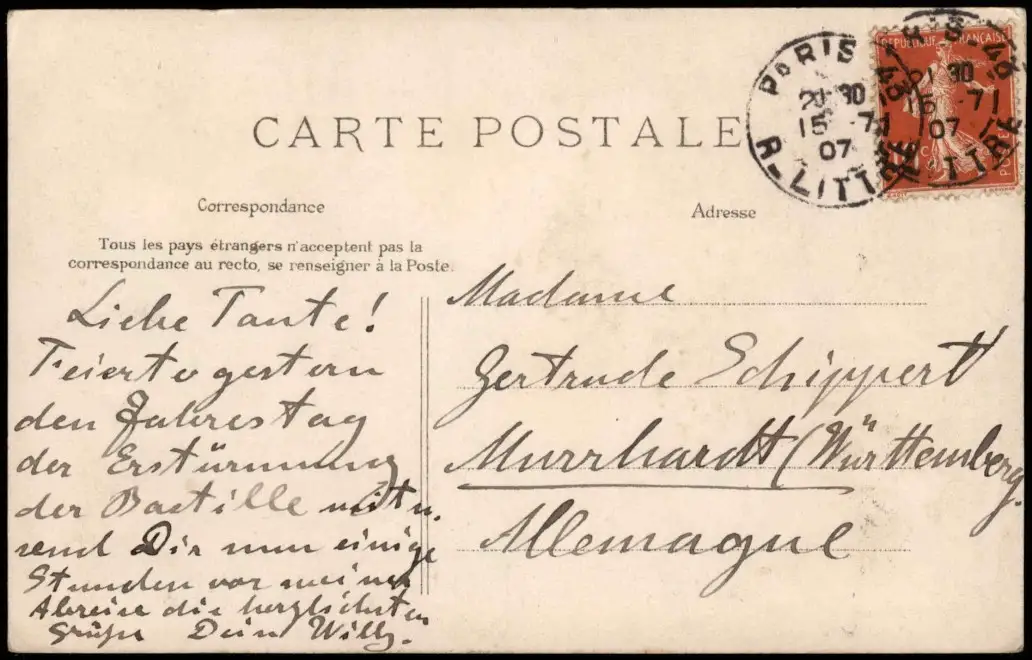 CARTE POSTALE
Correspondance
Adresse
Tous les pays étrangers n'acceptent pas la
correspondance au recto, se renseigner à la Poste.
Liebe Tante!
Feierte gestern
den Jahrestag
der Erstürmung
der Bastille mit u.
send Dir nun einige
Stunden vor meiner
Abreise die herzlichsten
Grüße Dein Willy.
Madame
Gertrude Schippert
Murrhardt (Württemberg.
Allemagne
PARIS - 43
21 30
15 -7
07
R-LITTRÉ
REPUBLIQUE FRANÇAISE
PARIS - 43
21 30
15 -7
07
LITTRÉ